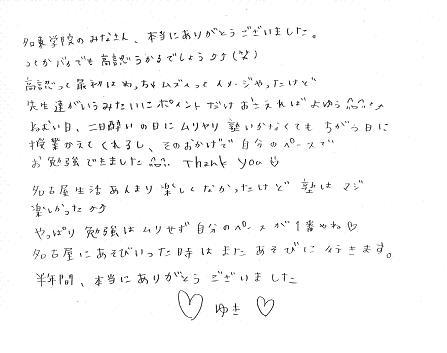 名東学院のみなさん、本当にありがとうございました。
ってかバカでも高認うかるでしょう♪♪(笑)
高認って最初はめっちゃムズイってイメージやったけど
先生達がいうみたいにポイントだけおさえればよゆう
ねむい日、二日酔いの日にムリヤリ塾いかなくてもちがう日に
授業かえてくれるし、そのおかげで自分のペースで
お勉強できました Thank you
名古屋生活あんまり楽しくなかったけど塾はマジ
楽しかった♪♪
やっぱり勉強はムリせず自分のペースが1番やね♡
名古屋にあそびいった時はまたあそびに行きます。
半年間、本当にありがとうございました
♡ ゆき ♡